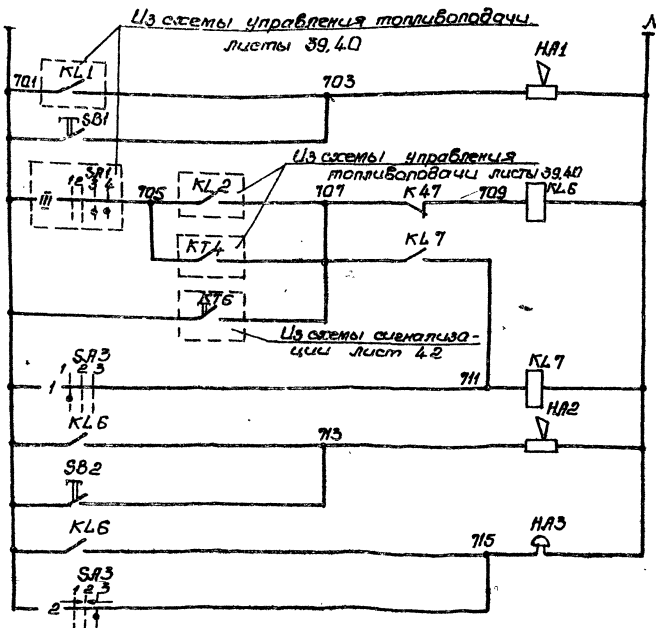 Из схемы управления топливоподачи
листы 39,40
N
701
KL1
703
HA1
SB1
Из схемы управления
топливоподачи листы 39,40
III
1 2 3 4
SA1
705
KL2
707
K47
709
KL6
KT4
KL7
KT6
Из схемы сигнализа-
ции лист 42
SA3
1 2 3
1
711
KL7
KL6
713
HA2
SB2
KL6
715
HA3
SA3
1 2 3
2